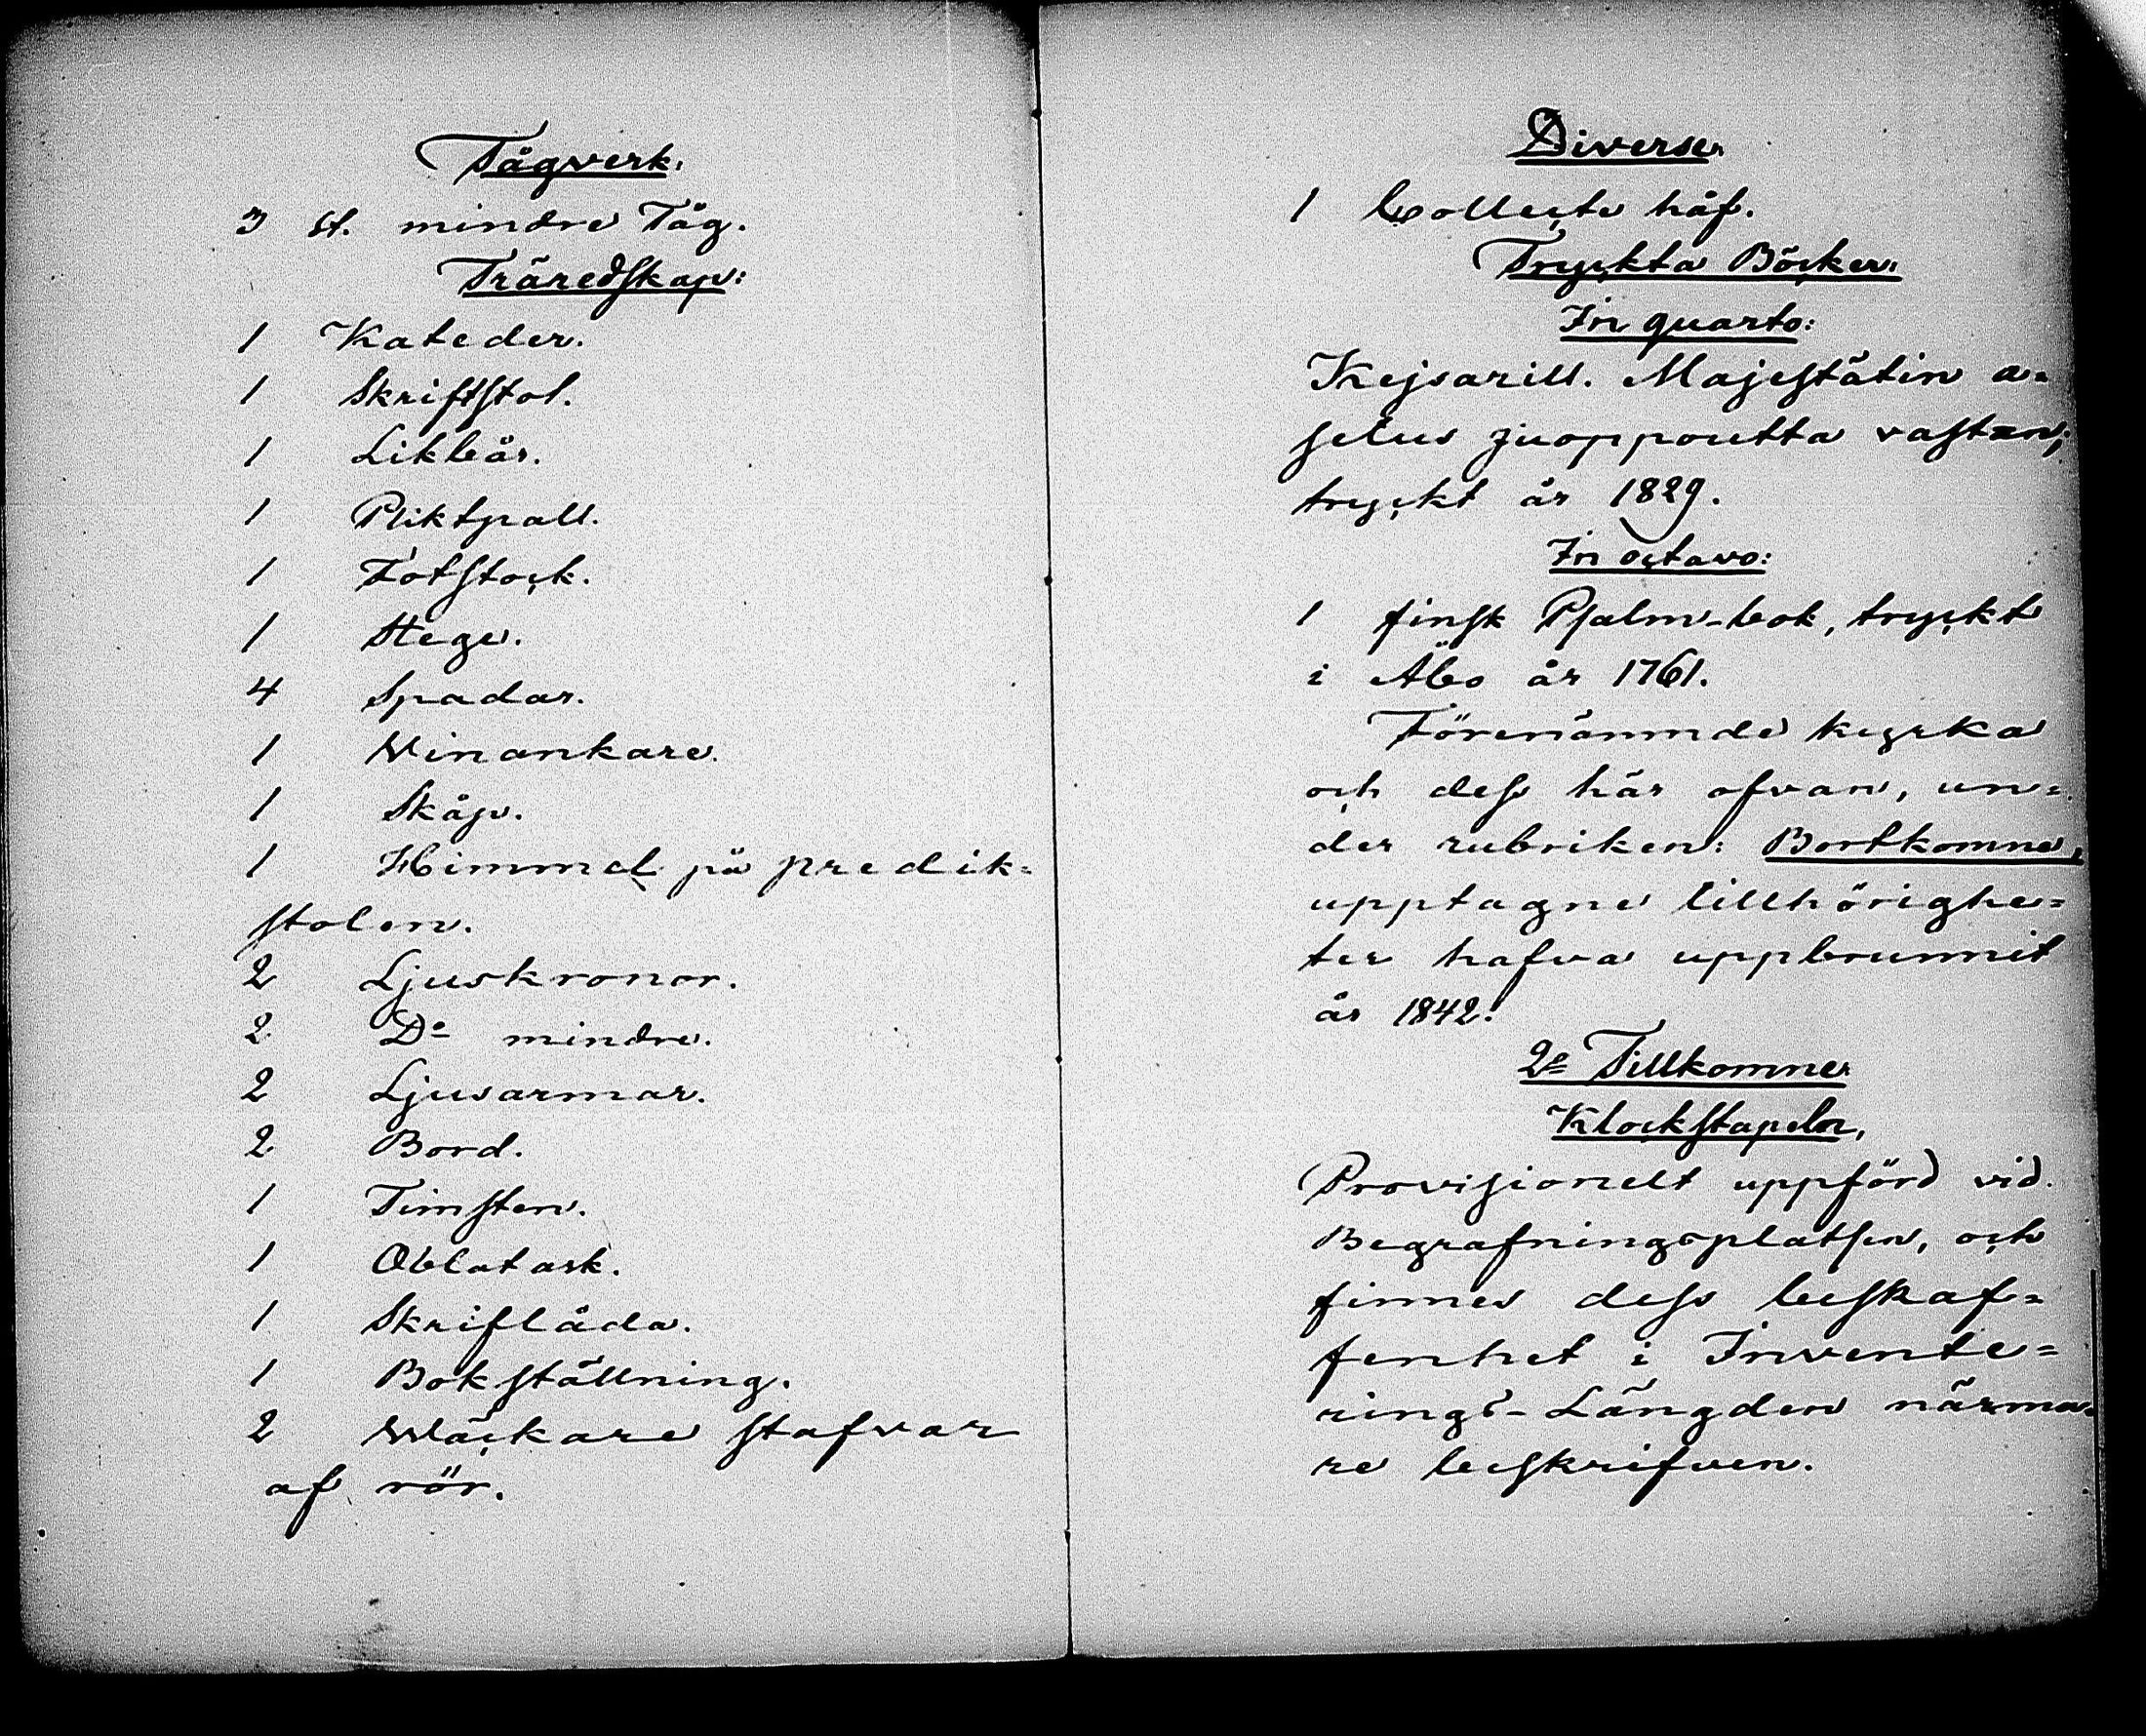 Tågverk:
3 st. mindre Tåg.
Träredskap:
1 Kateder.
1 Skriftstol.
1 Likbår.
1 Pliktpall.
1 Fotstock.
1 Stege.
4 Spadar.
1 Vinankare.
1 Skåp.
1 Himmel på predik=
stolen.
2 Ljuskronor.
2 Do mindre.
2 Ljusarmar.
2 Bord.
1 Timsten.
1 Oblatask.
1 Skriflåda.
1 Bokställning.
2 Wäckare stafvar
af rör.
Diverse
1 Collecte håf.
Tryckta Böcker:
In quarto:
Kejsarill. Majestätin a=
setus juoppoutta vastan,
tryckt år 1829.
In octavo:
1 finsk Psalm-bok, tryckt
i Åbo år 1761.
Förenämnde kyrka
och dess här ofvan, un=
der rubriken: Bortkomne,
upptagne tillhörighe=
ter hafva uppbrunnit
år 1842.
2o Tillkomne
Klockstapeln,
Provisionelt uppförd vid
Begrafningsplatsen, och
finnes dess beskaf=
fenhet i Invente=
rings-Längden närma=
re beskrifven.